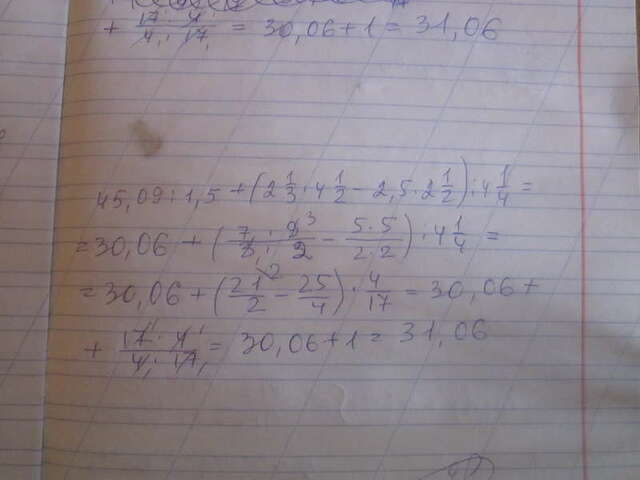 + 17·4/4·17 = 30,06+1 = 31,06
45,09:1,5 + (2 1/3 · 4 1/2 - 2,5·2 1/2) : 4 1/4 =
= 30,06 + (7·9³/3₁·2 - 5·5/2·2) : 4 1/4 =
= 30,06 + (21²/2 - 25/4) · 4/17 = 30,06 +
+ 17¹·4¹/4₁·17₁ = 30,06+1 = 31,06